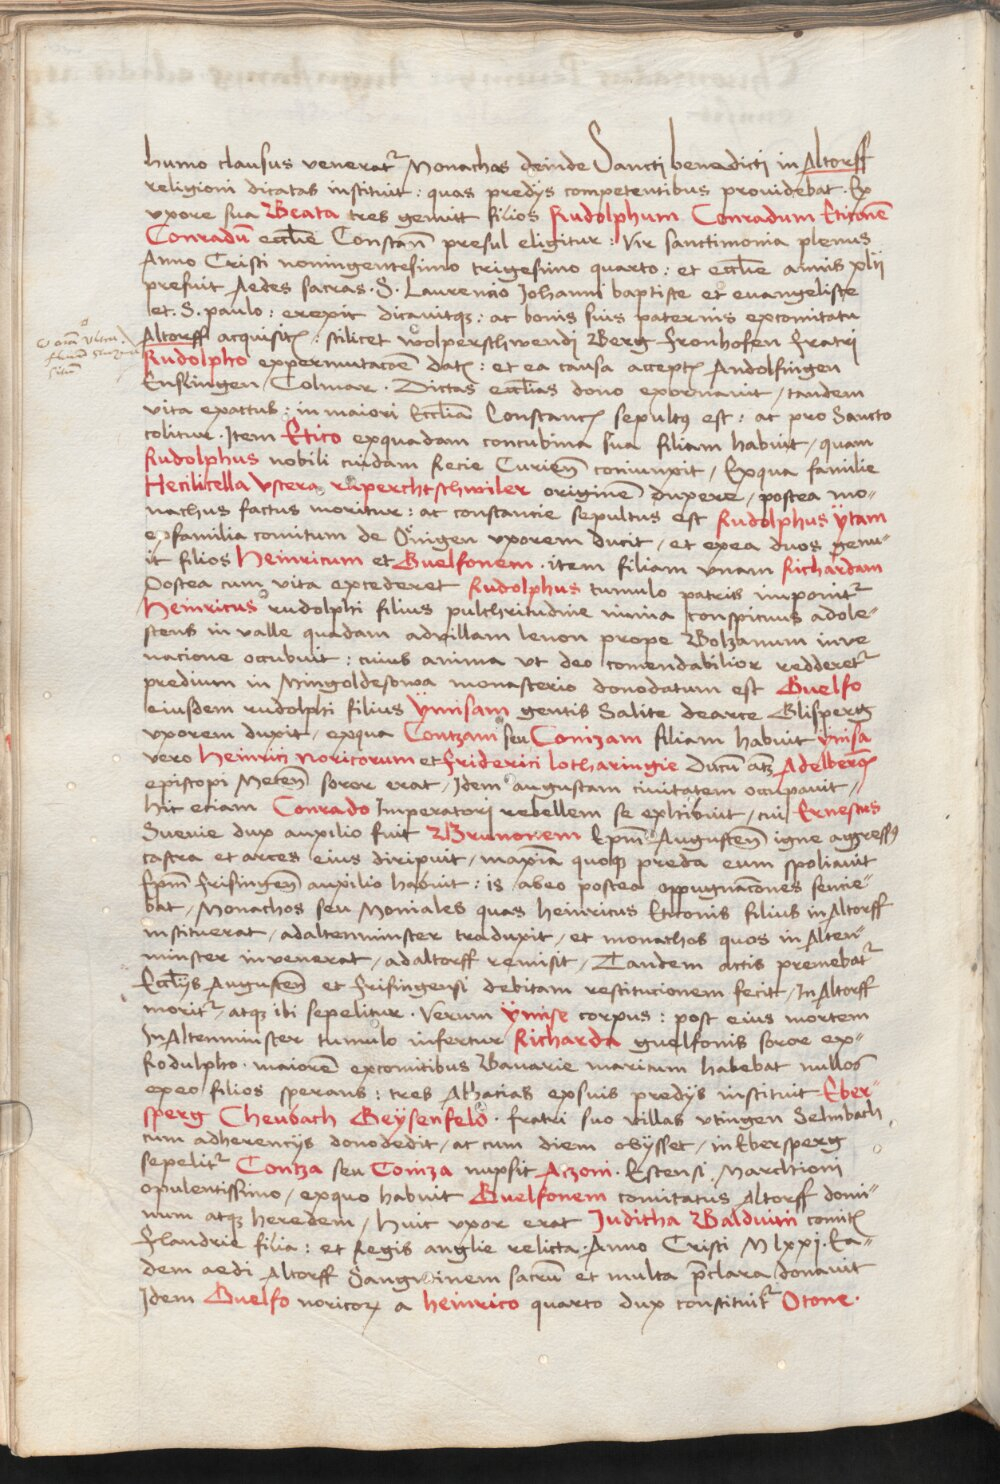 humo clausus venerat᷑ Monachos deinde Sancti benedicti in Altorff
religioni dicatas instituit : quas predijs competentibus prouidebat · Ex
vxore sua Beata tres genuit filios Rudolphum Conradum Eticonē
Conradū eccl̄ie Constan̄ presul eligitur : Vir sanctimonia plenus
Anno Cristi noningentesimo trigesimo quarto : et eccl̄ie annis xlij
prefuit Aedes sacras · S. Laurencio Johanni baptiste et euangeliste
et · S. paulo : erexit dicauitqꝫ : ac bonis suis paternis excomitatu
Altorff acquisitꝭ : scilicet wolperschwendi Berg fronhofen fratri
Rudolpho expermutacōē datꝭ : et ea causa acceptꝭ Andolfingen
Enslingen / Colmar · Dictas eccl̄ias dono exornauit / tandem
vita exactus : in maiori Eccl̄ia Constancꝭ sepultꝰ est : ac pro Sancto
colitur · Item Etico exquadam concubina sua filiam habuit / quam
Rudolphus nobili cuidam Recie Curien̄ coniunxit / Exqua familie
Hecilicella vscera rüperchtschwiler originē duxere / postea mo-
nachus factus moritur : ac constancie sepultus est Rudolphus ÿtam
exfamilia comitum de Öningen vxorem ducit / et exea duos genu-
it filios Heinricum et Guelfonem · item filiam vnam Richardam
Postea cum vita excederet Rudolphus tumulo patris imponit᷑
Heinricus rudolphi filius pulchritudine nimia conspicuus adole-
scens in valle quadam advillam lenon prope Bolzanum inve
nacione occubuit : cuius anima vt deo comendabilior redderet᷑
predium in Mingoldesowa monasterio donodatum est Guelfo
eiusdem rudolphi filius ÿmisam gentis Salite dearce Glisperg
vxorem duxit / exqua Contzam seu Conizam filiam habuit ÿmisa
vero Heinrici Noricorum et Friderici lotharingie Ducū atqꝫ Adelberoꝭ
episcopi Meten̄ soror erat / Idem augustam ciuitatem occupauit /
hic eciam Conrado Imperatori rebellem se exhibuit / cui Ernestus
Sueuie dux auxilio fuit Brunonem Ep̄m Augusten̄ igne aggressꝰ
castra et arces eius diripuit / maxīa quoqꝫ preda eum spoliauit
Ep̄m frisingen̄ auxilio habuit : is abeo postea oppugnacōnes sencie-
bat / Monachos seu Moniales quas heinricus Eticonis filius in Altorff
instituerat / adaltenminster traduxit / et monachos quos in Alten-
minster invenerat / adaltorff remisit / Tandem actis premebat᷑
Eccl̄ijs Augusten̄ et frisingensi debitam restitucionem fecit / In Altorff
morit᷑ / atqꝫ ibi sepelitur · Verum ÿmise corpus : post eius mortem
In Altenminster tumulo infertur Richarda guelfonis soror ex-
Rodulpho · maiorē excomitibus Bauarie maritum habebat nullos
exeo filios sperans : tres Abbacias exsuis predijs instituit Eber-
sperg Cheubach Geysenfeld · fratri suo villas vtingen Selmbach
cum adherencijs donodedit / ac cum diem obijsset / in Ebersperg
sepelit᷑ Contza seu Coniza nupsit Aczoni · Estensi Marchioni
opulentissimo / exquo habuit Guelfonem comitatus Altorff domi-
num atqꝫ heredem / Huic vxor erat Juditha Balduini comitꝭ
Flandrie filia : et Regis anglie relicta · Anno Cristi Mlxxi · Ea-
dem aedi Altorff Sanguinem sacrū et multa p̄clara donauit
Idem Guelfo noricoꝝ a heinrico quarto dux constituit᷑ Otone ·